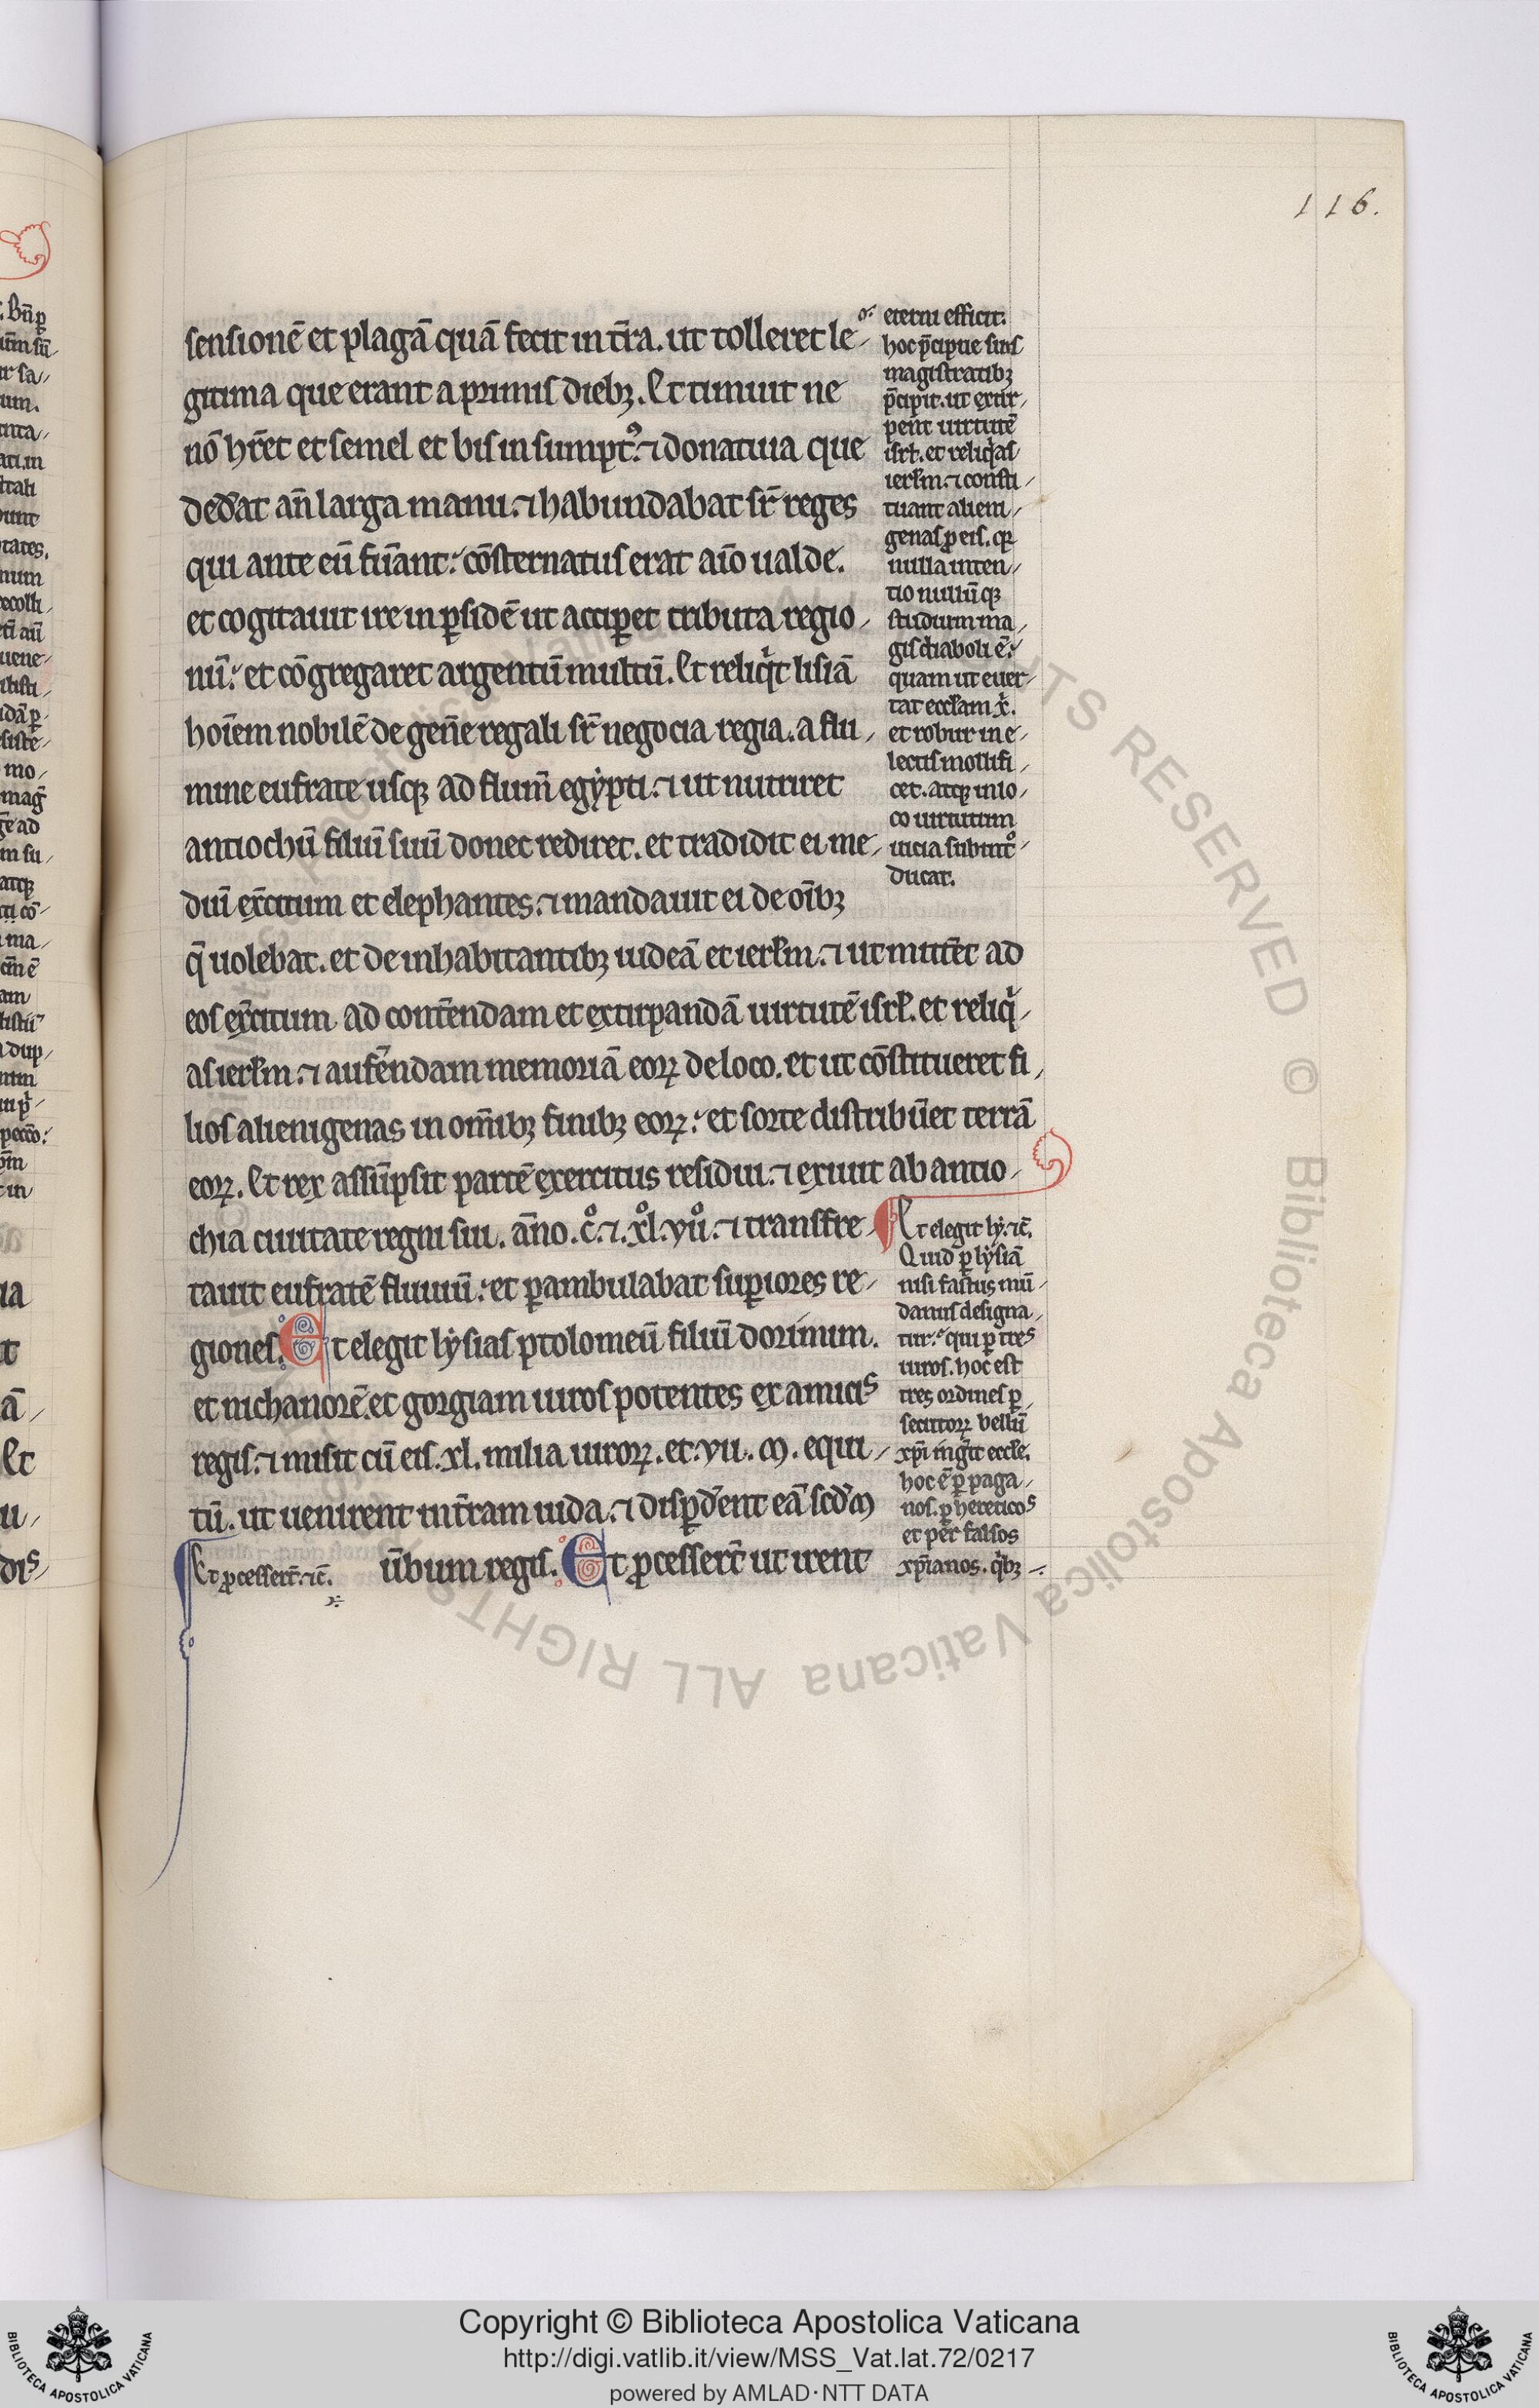 116.
sensionē et plagā quā fecit in t̄ra. ut tolleret le-
gitima que erant a primis dieb;. Et timuit ne
nō hr̄et et semel et bis in sumpt9. ⁊ donatiua que
ded̄at an̄ larga manu. ⁊ habundabat sr̄ reges
qui ante eū fūant. cōsternatus erat aīo ualde.
et cogitauit ire in ꝑsidē ut acciꝑet tributa regio-
nū. et cōgregaret argentū multū. Et reliqͥt lisiā
hoīem nobilē de gen̄e regali sr̄ negocia regia. a flu-
mine eufrate usq; ad flum̄ egẏpti. ⁊ ut nutriret
antiochū filiū suū donec rediret. et tradidit ei me-
diū ex̄citum et elephantes. ⁊ mandauit ei de oīb;
q̄ uolebat. et de inhabitantib; iudeā et ierl̄m. ⁊ ut mitt̄et ad
eos ex̄citum ad cont̄endam et extirpandā uirtutē isrl̄. et reliqͥ-
as ierl̄m. ⁊ auf̄endam memoriā eoꝝ de loco. et ut cōstitueret fi-
lios alienigenas in om̄ib; finib; eoꝝ. et sorte distribūet terrā
eoꝝ. Et rex assūpsit partē exercitus residui. ⁊ exiuit ab antio-
chia ciuitate regni sui. āno. c̊. ⁊. xl̊. vii̊. ⁊ transfre-
tauit eufratē fluuiū. et ꝑambulabat suꝑiores re-
giones. Et elegit lẏsias ptolomeū filiū dorinum.
et nichanorē. et gorgiam uiros potentes ex amicis
regis. ⁊ misit cū eis. xl. milia uiroꝝ. et. vii. m. equi-
tū. ut uenirent in t̄ram iuda. ⁊ disꝑd̄ent eā scd̄m
ūbum regis. Et ꝓcesser̄t ut irent
eterni efficit.
hoc p̄cipue suis
magistratib;
p̄cipit. ut extir-
pent uirtutē
isrl̄. et reliqͥas
ierl̄m. ⁊ consti-
tuant alieni-
genas ꝓ eis. q̄
nulla inten-
tio nullūq;
studium ma-
gis diaboli ē.
quam ut euer-
tat eccl̄am x̄.
et robur in e-
lectis mollifi-
cet. atq; in lo-
co uirtutum
uicia subintͦ-
ducat.
Et elegit lẏ. ⁊c̄.
Quid ꝑ lẏsiā
nisi fastus mū-
danus designa-
tur. qui ꝑ tres
uiros. hoc est
tres ordines ꝑ-
secutoꝝ bellū
xp̄i inḡit eccl̄e.
hoc ē ꝑ paga-
nos. ꝑ hereticos
et per falsos
xp̄ianos. qͥb;
Et ꝓcesser̄t. ⁊c̄.
Copyright © Biblioteca Apostolica Vaticana
http://digi.vatlib.it/view/MSS_Vat.lat.72/0217
powered by AMLAD·NTT DATA
BIBLIOTECA APOSTOLICA VATICANA
BIBLIOTECA APOSTOLICA VATICANA